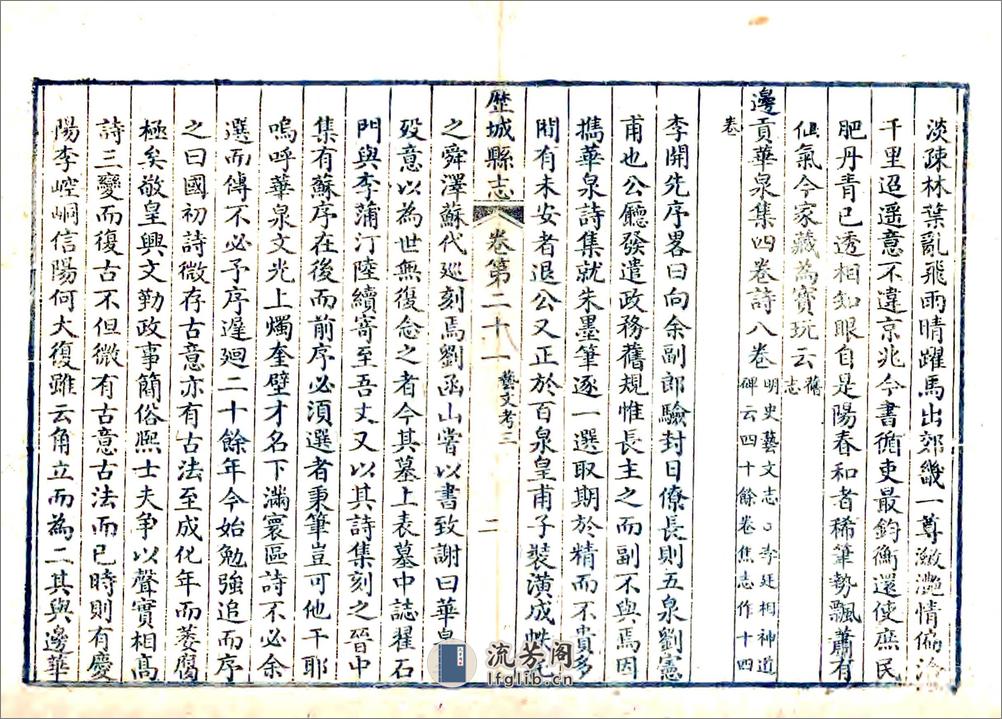 淡疎林葉亂飛雨晴躍馬出郊畿一尊瀲灩情偏洽
千里迢遥意不違京兆今書循吏最鈞衡還使庶民
肥丹青已透相如眼自是陽春和者稀筆勢飄蕭有
仙氣今家藏為寳玩云舊志
邊貢華泉集四卷詩八卷明史藝文志李廷相神道碑云四十餘卷焦志作十四
卷
李開先序畧曰向余副郎驗封日僚長則五泉劉憲
甫也公廳發遣政務舊規惟長主之而副不與焉因
擕華泉詩集就朱墨筆逐一選取期於精而不貴多
間有未安者退公又正於百泉皇甫子裝潢成帙
歷城縣志 卷第二十一 藝文考三 二
之舜澤蘇代巡刻焉劉函山嘗以書致謝曰華泉
殁意以為世無復念之者今其墓上表墓中誌瞿石
門與李蒲汀陸續寄至吾丈又以其詩集刻之晉中
集有蘇序在後而前序必湏選者秉筆豈可他干耶
嗚呼華泉文光上燭奎壁才名下滿寰區詩不必余
選而傳不必予序遅廻二十餘年今始勉強追而序
之曰國初詩微存古意亦有古法至成化年而萎腐
極矣敬皇興文勤政事簡俗熙士夫争以聲實相高
詩三變而復古不但微有古意古法而已時則有慶
陽李崆峒信陽何大復雖云角立而為二其與邊華
流芳阁
lfglib.cn